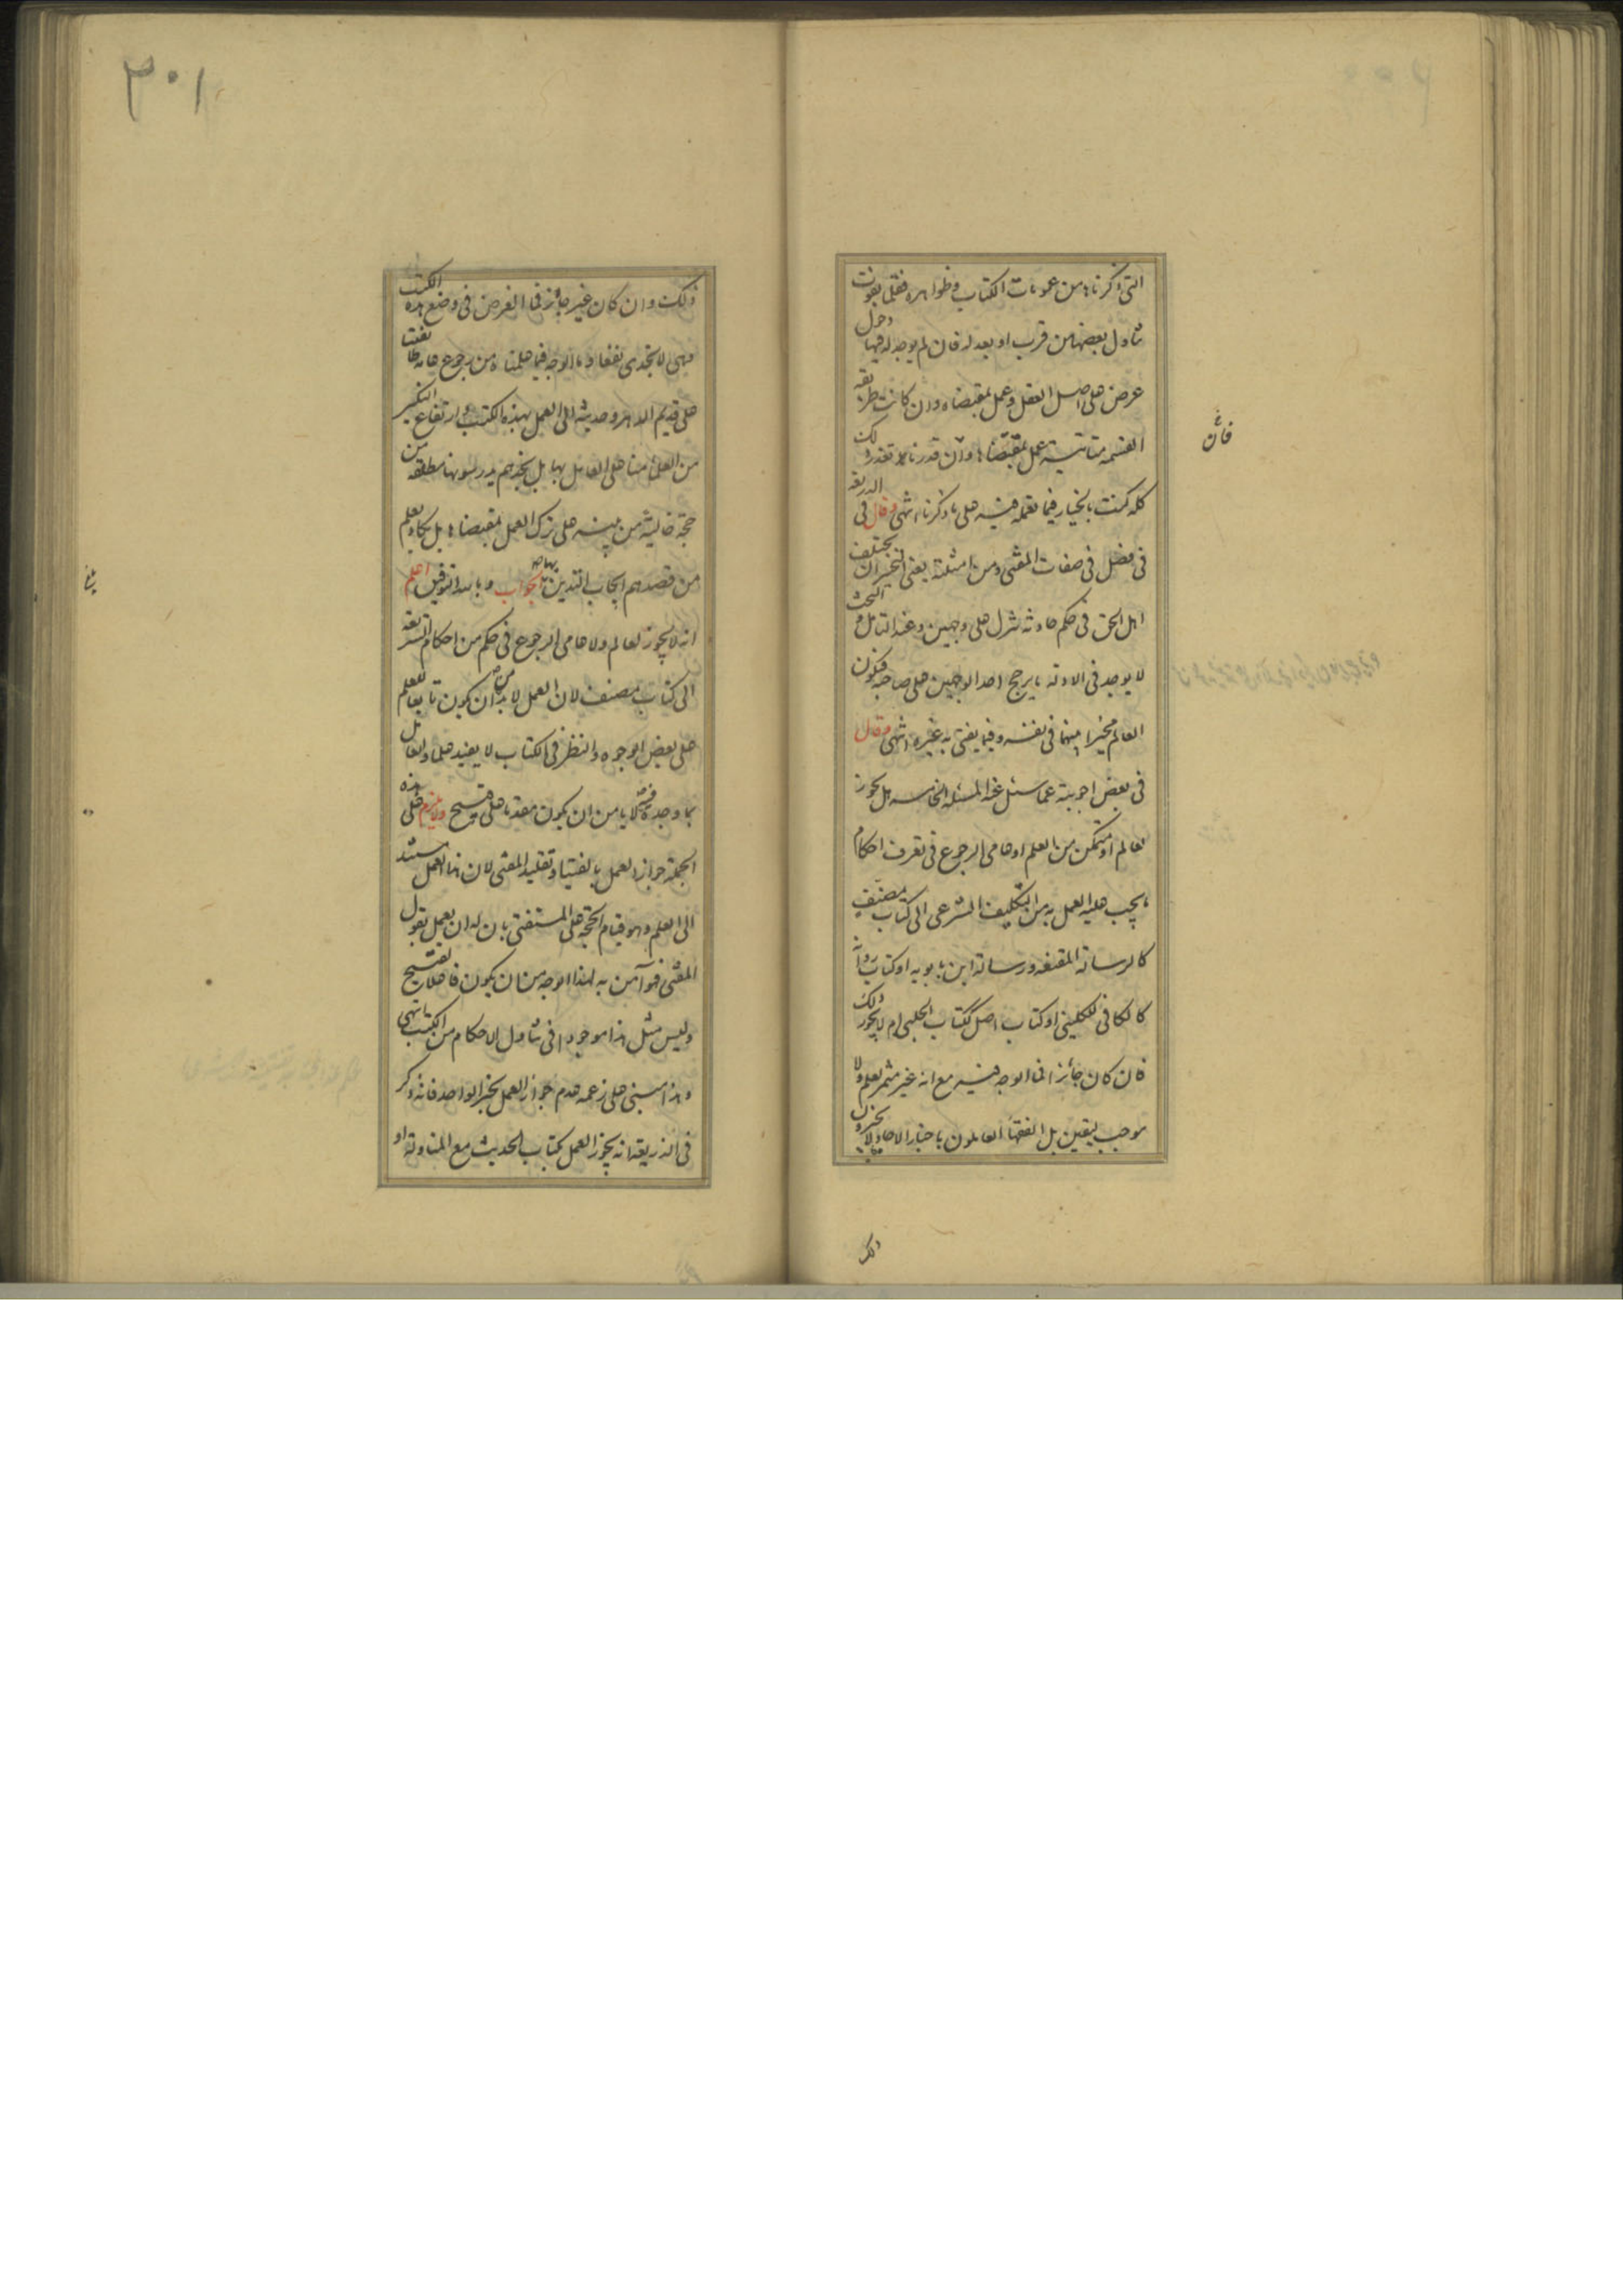 التی ذکرناها من عمومات الکتاب وظواهره فقلما یفوت
تناول بعضها من قرب او بعد له فان لم یوجد له فیها دخول
عرض علی اصل العقل وعمل بمقتضاه وان کانت طریقه
القسمة متأتیة عمل بمقتضاها وان قدرنا تعذر ذلک
فان
کله کنت بالخیار فیما تعمله فیه علی ما ذکرنا انتهی وقال فی الذریعة
فی فصل فی صفات المفتی ومن امثلته یعنی التخییر ان یختلف
اهل الحق فی حکم حادثة نزل علی وجهین وعند التأمل والبحث
لا یوجد فی الادلة ما یرجح احد الوجهین علی صاحبه فیکون
العالم مخیرا بینهما فی نفسه وفیما یفتی به غیره انتهی وقال
فی بعض اجوبته عما سئل عنه المسئلة الخامسة هل یجوز
لعالم او متمکن من العلم او عامی الرجوع فی تعرف احکام
ما یجب علیه العمل به من التکلیف الشرعی الی کتاب مصنف
کالرسالة المقنعة ورسالة ابن بابویه او کتاب روایة
کالکافی للکلینی او کتاب اصل ککتاب الحلبی ام لا یجوز ذلک
فان کان جائزا فما الوجه فیه مع انه غیر مثمر لعلم ولا
موجب لیقین بل الفقهاء العاملون باخبار الآحاد لا یجیزون
ذلک
۳۰۱
ذلک وان کان غیر جائز فما الغرض فی وضع هذه الکتب
فهی لا تجدی نفعا وما الوجه فیما علمناه من رجوع عامة طائفتنا
علی قدیم الدهر وحدیثه الی العمل بهذه الکتب وارتفاع النکیر
من العلماء منا علی العامل بها بل نجدهم یدرسونها مطلقة من
حجة خالیة من تنبیه علی ترک العمل بمقتضاها بل یکاد یعلم
من قصدهم ایجاب التدین بها الجواب وبالله التوفیق اعلم
انه لا یجوز لعالم ولا عامی الرجوع فی حکم من احکام الشریعة
الی کتاب مصنف لان العمل لا بد من ان یکون تابعا للعلم
علی بعض الوجوه والنظر فی الکتاب لا یفید علما والعامل
بما وجده فیه لا یأمن ان یکون مقدما علی قبیح ولا یلزم علی هذه
الجملة جواز العمل بالفتیا وتقلید المفتی لان هذا العمل مستند
الی العلم وهو قیام الحجة علی المستفتی بان له ان یعمل بقول
المفتی فهو آمن به لهذا الوجه من ان یکون فاعلا لقبیح
ولیس مثل هذا موجودا فی تناول الاحکام من الکتب انتهی
وهذا مبنی علی زعمه عدم جواز العمل بخبر الواحد فانه ذکر
فی الذریعة انه یجوز العمل بکتاب الحدیث مع المناولة او